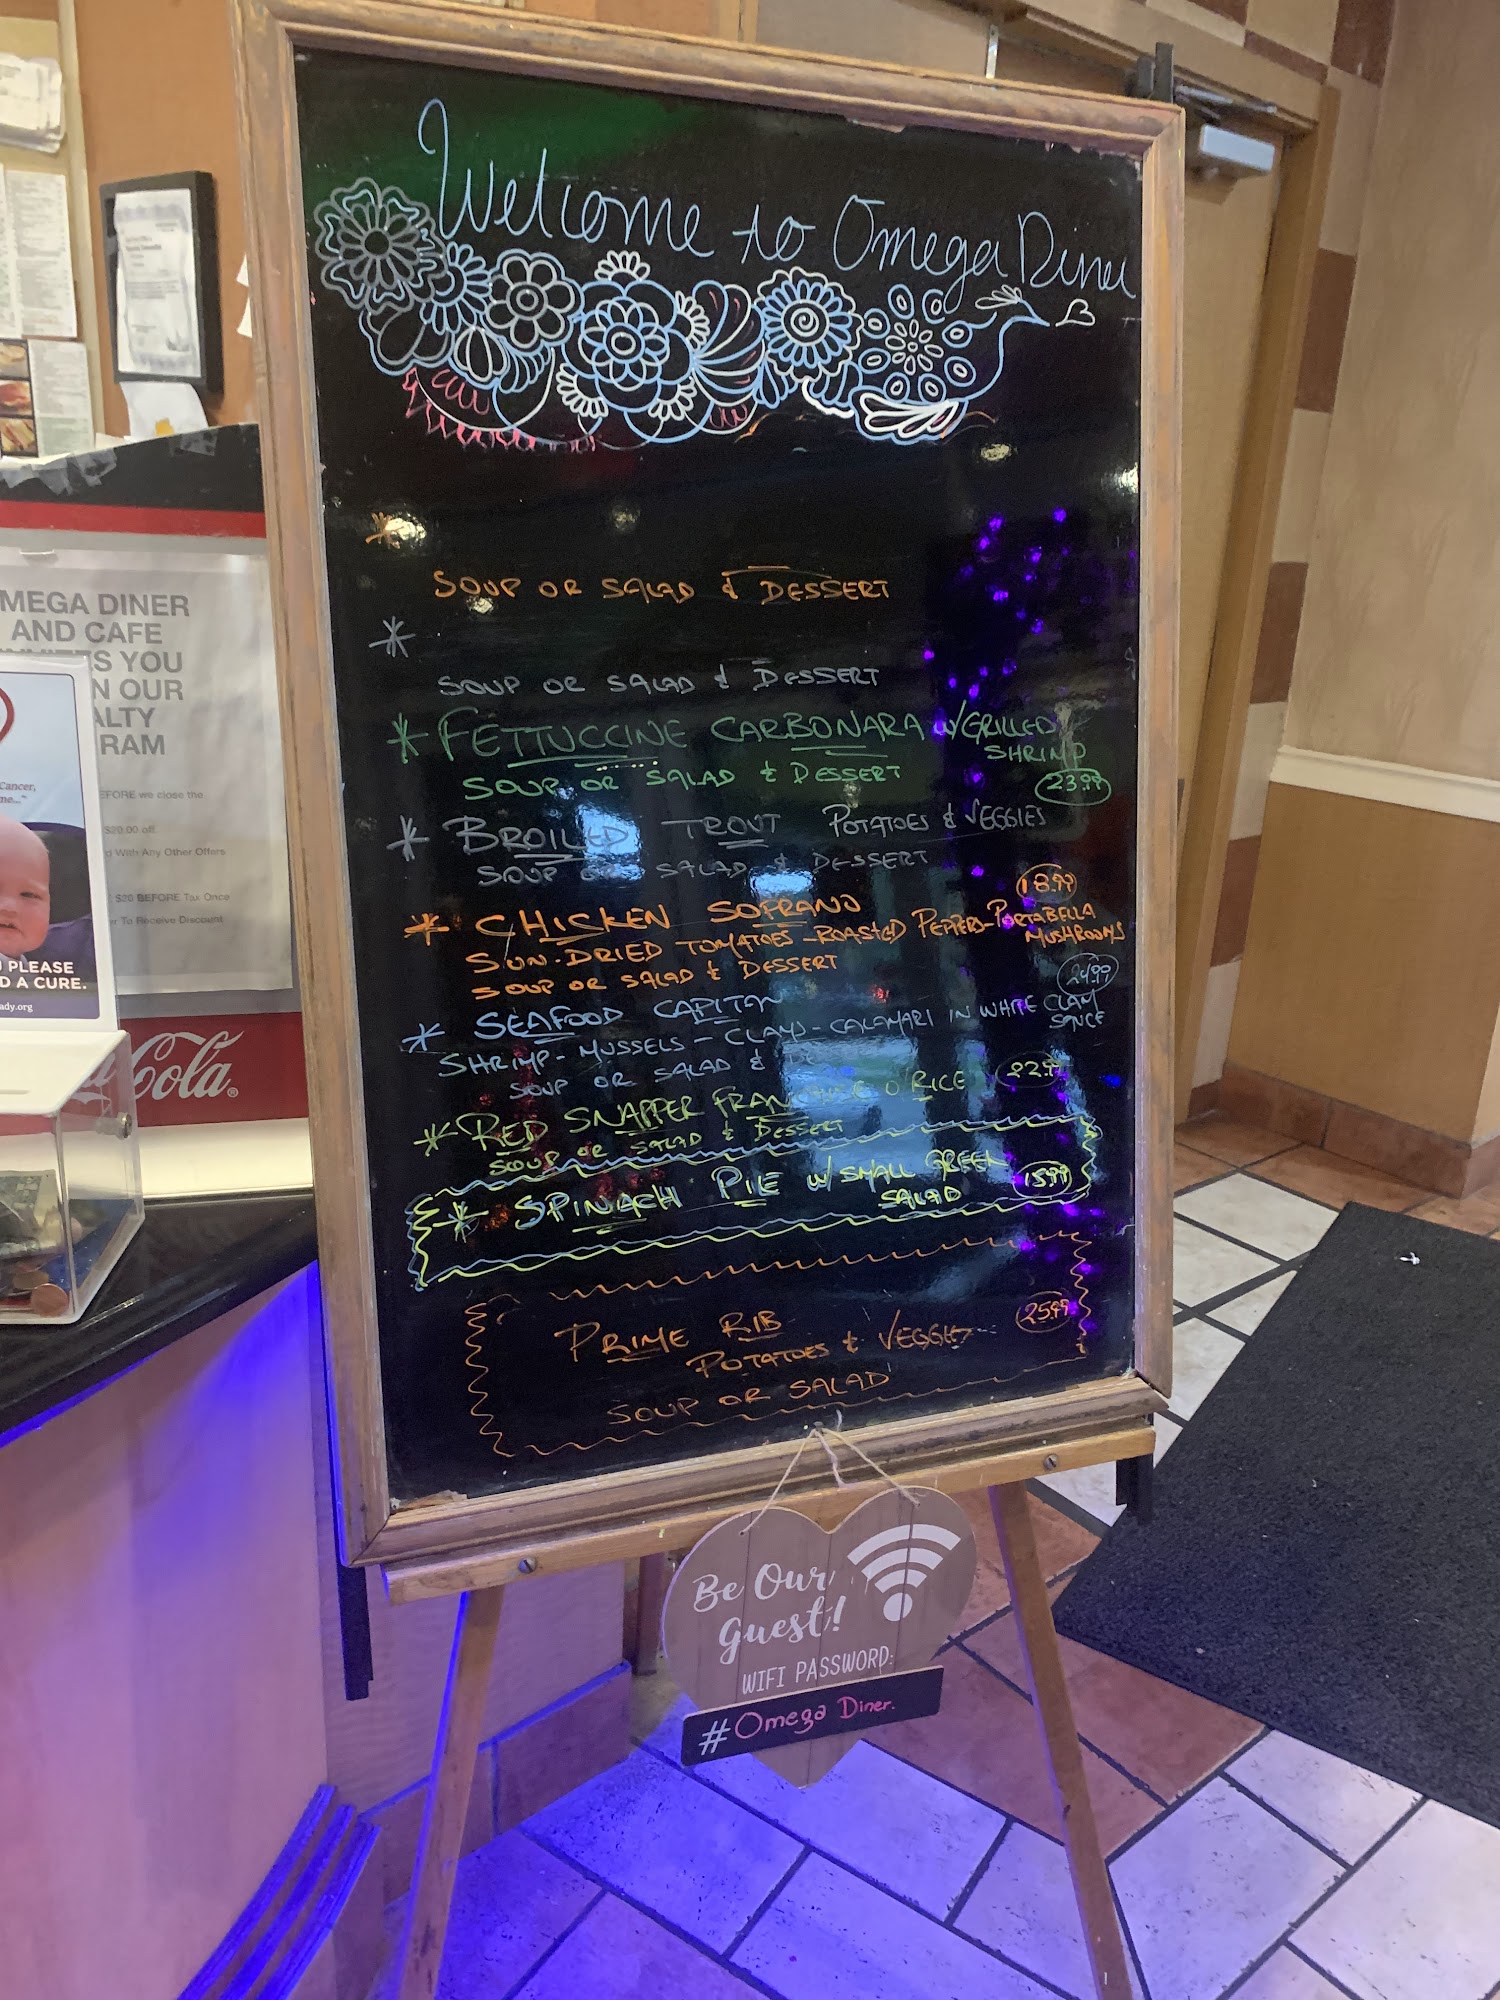 Welcome to Omega Diner
*
SOUP OR SALAD & DESSERT
*
SOUP OR SALAD & DESSERT
* FETTUCCINE CARBONARA W/GRILLED
SHRIMP
SOUP OR SALAD & DESSERT
23.99
* BROILED TROUT POTATOES & VEGGIES
SOUP OR SALAD & DESSERT
18.99
* CHICKEN SOFRANO
SUN-DRIED TOMATOES-ROASTED PEPPERS-PORTABELLA
MUSHROOMS
SOUP OR SALAD & DESSERT
24.99
* SEAFOOD CAPITAN
SHRIMP-MUSSELS-CLAMS-CALAMARI IN WHITE CLAM
SAUCE
SOUP OR SALAD &
* RED SNAPPER FRANCHISE O RICE 22.99
SOUP OR SALAD & DESSERT
* SPINACH PIE W/SMALL GREEN
SALAD
15.99
PRIME RIB
25.99
POTATOES & VEGGIES
SOUP OR SALAD
Be Our
Guest!
WIFI PASSWORD:
#Omega Diner.
MEGA DINER
AND CAFE
S YOU
N OUR
ALTY
RAM
EFORE we close the
$20.00 off
d With Any Other Offers
$20 BEFORE Tax Once
er To Receive Discount
Cancer,
me..."
PLEASE
D A CURE.
ady.org
Cola®